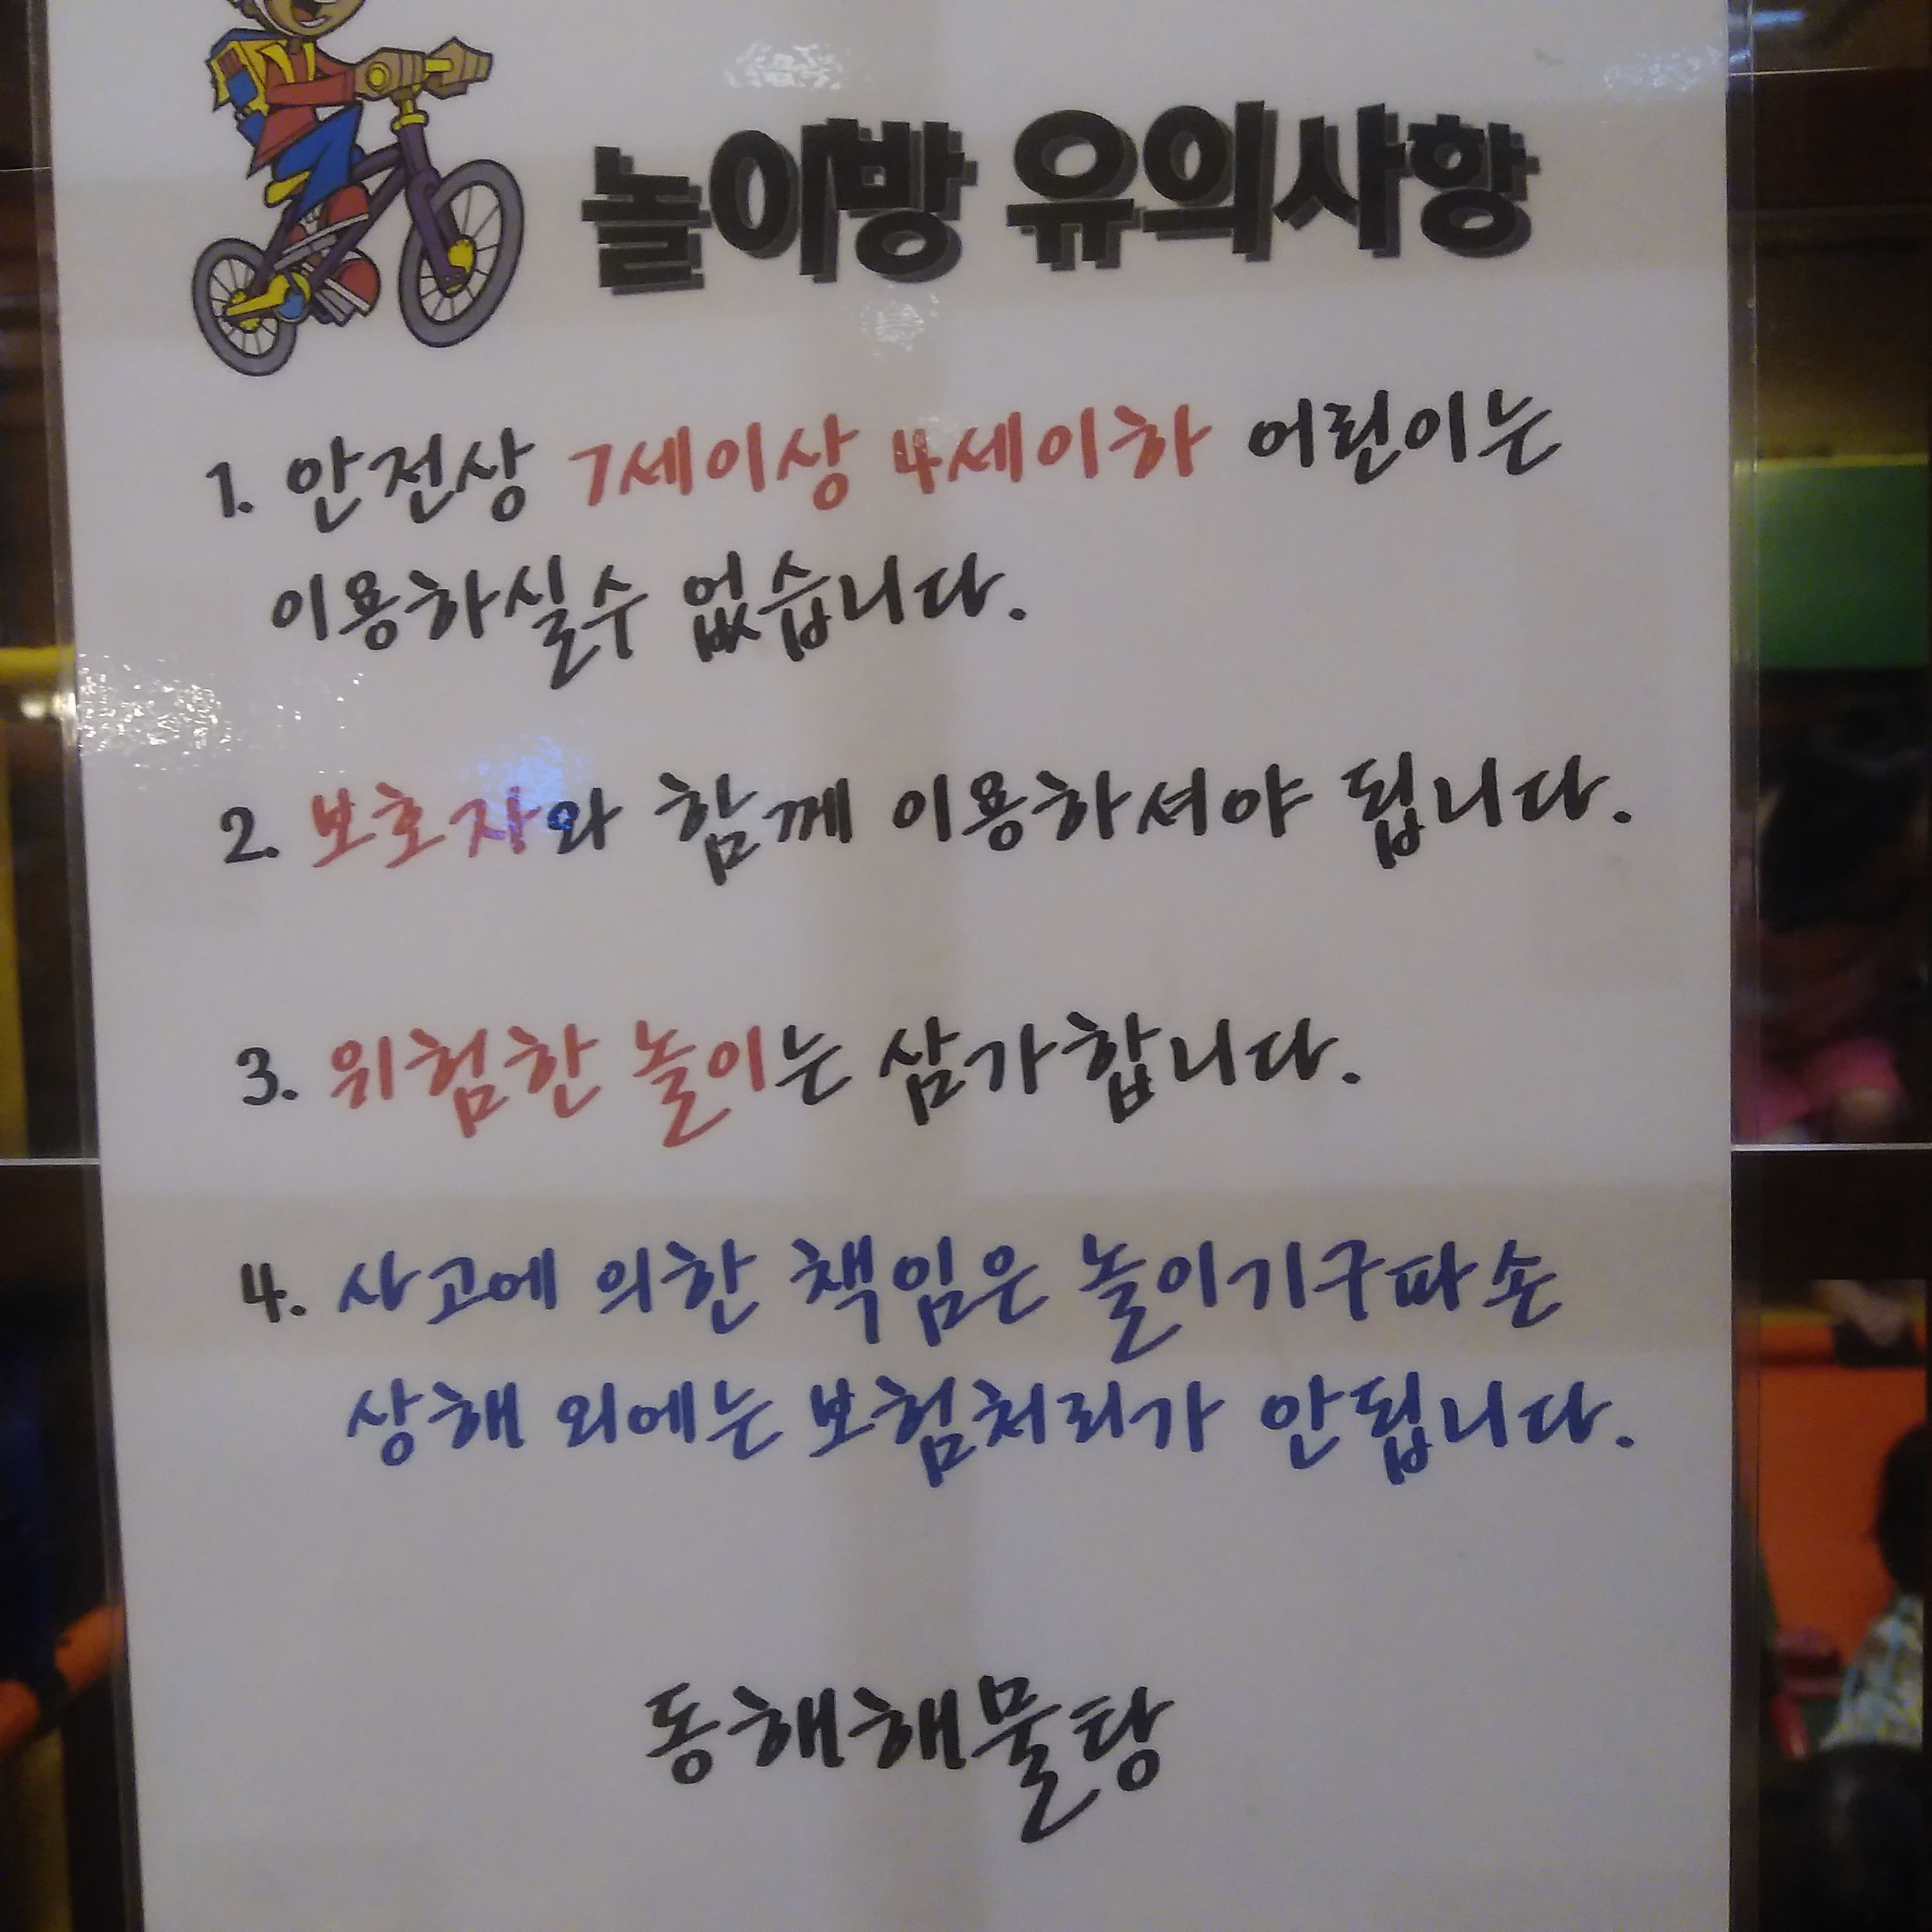 놀이방 유의사항
1. 안전상 7세이상 4세이하 어린이는
이용하실수 없습니다.
2. 보호자와 함께 이용하셔야 됩니다.
3. 위험한 놀이는 삼가합니다.
4. 사고에 의한 책임은 놀이기구파손
상해 외에는 보험처리가 안됩니다.
동해해물탕